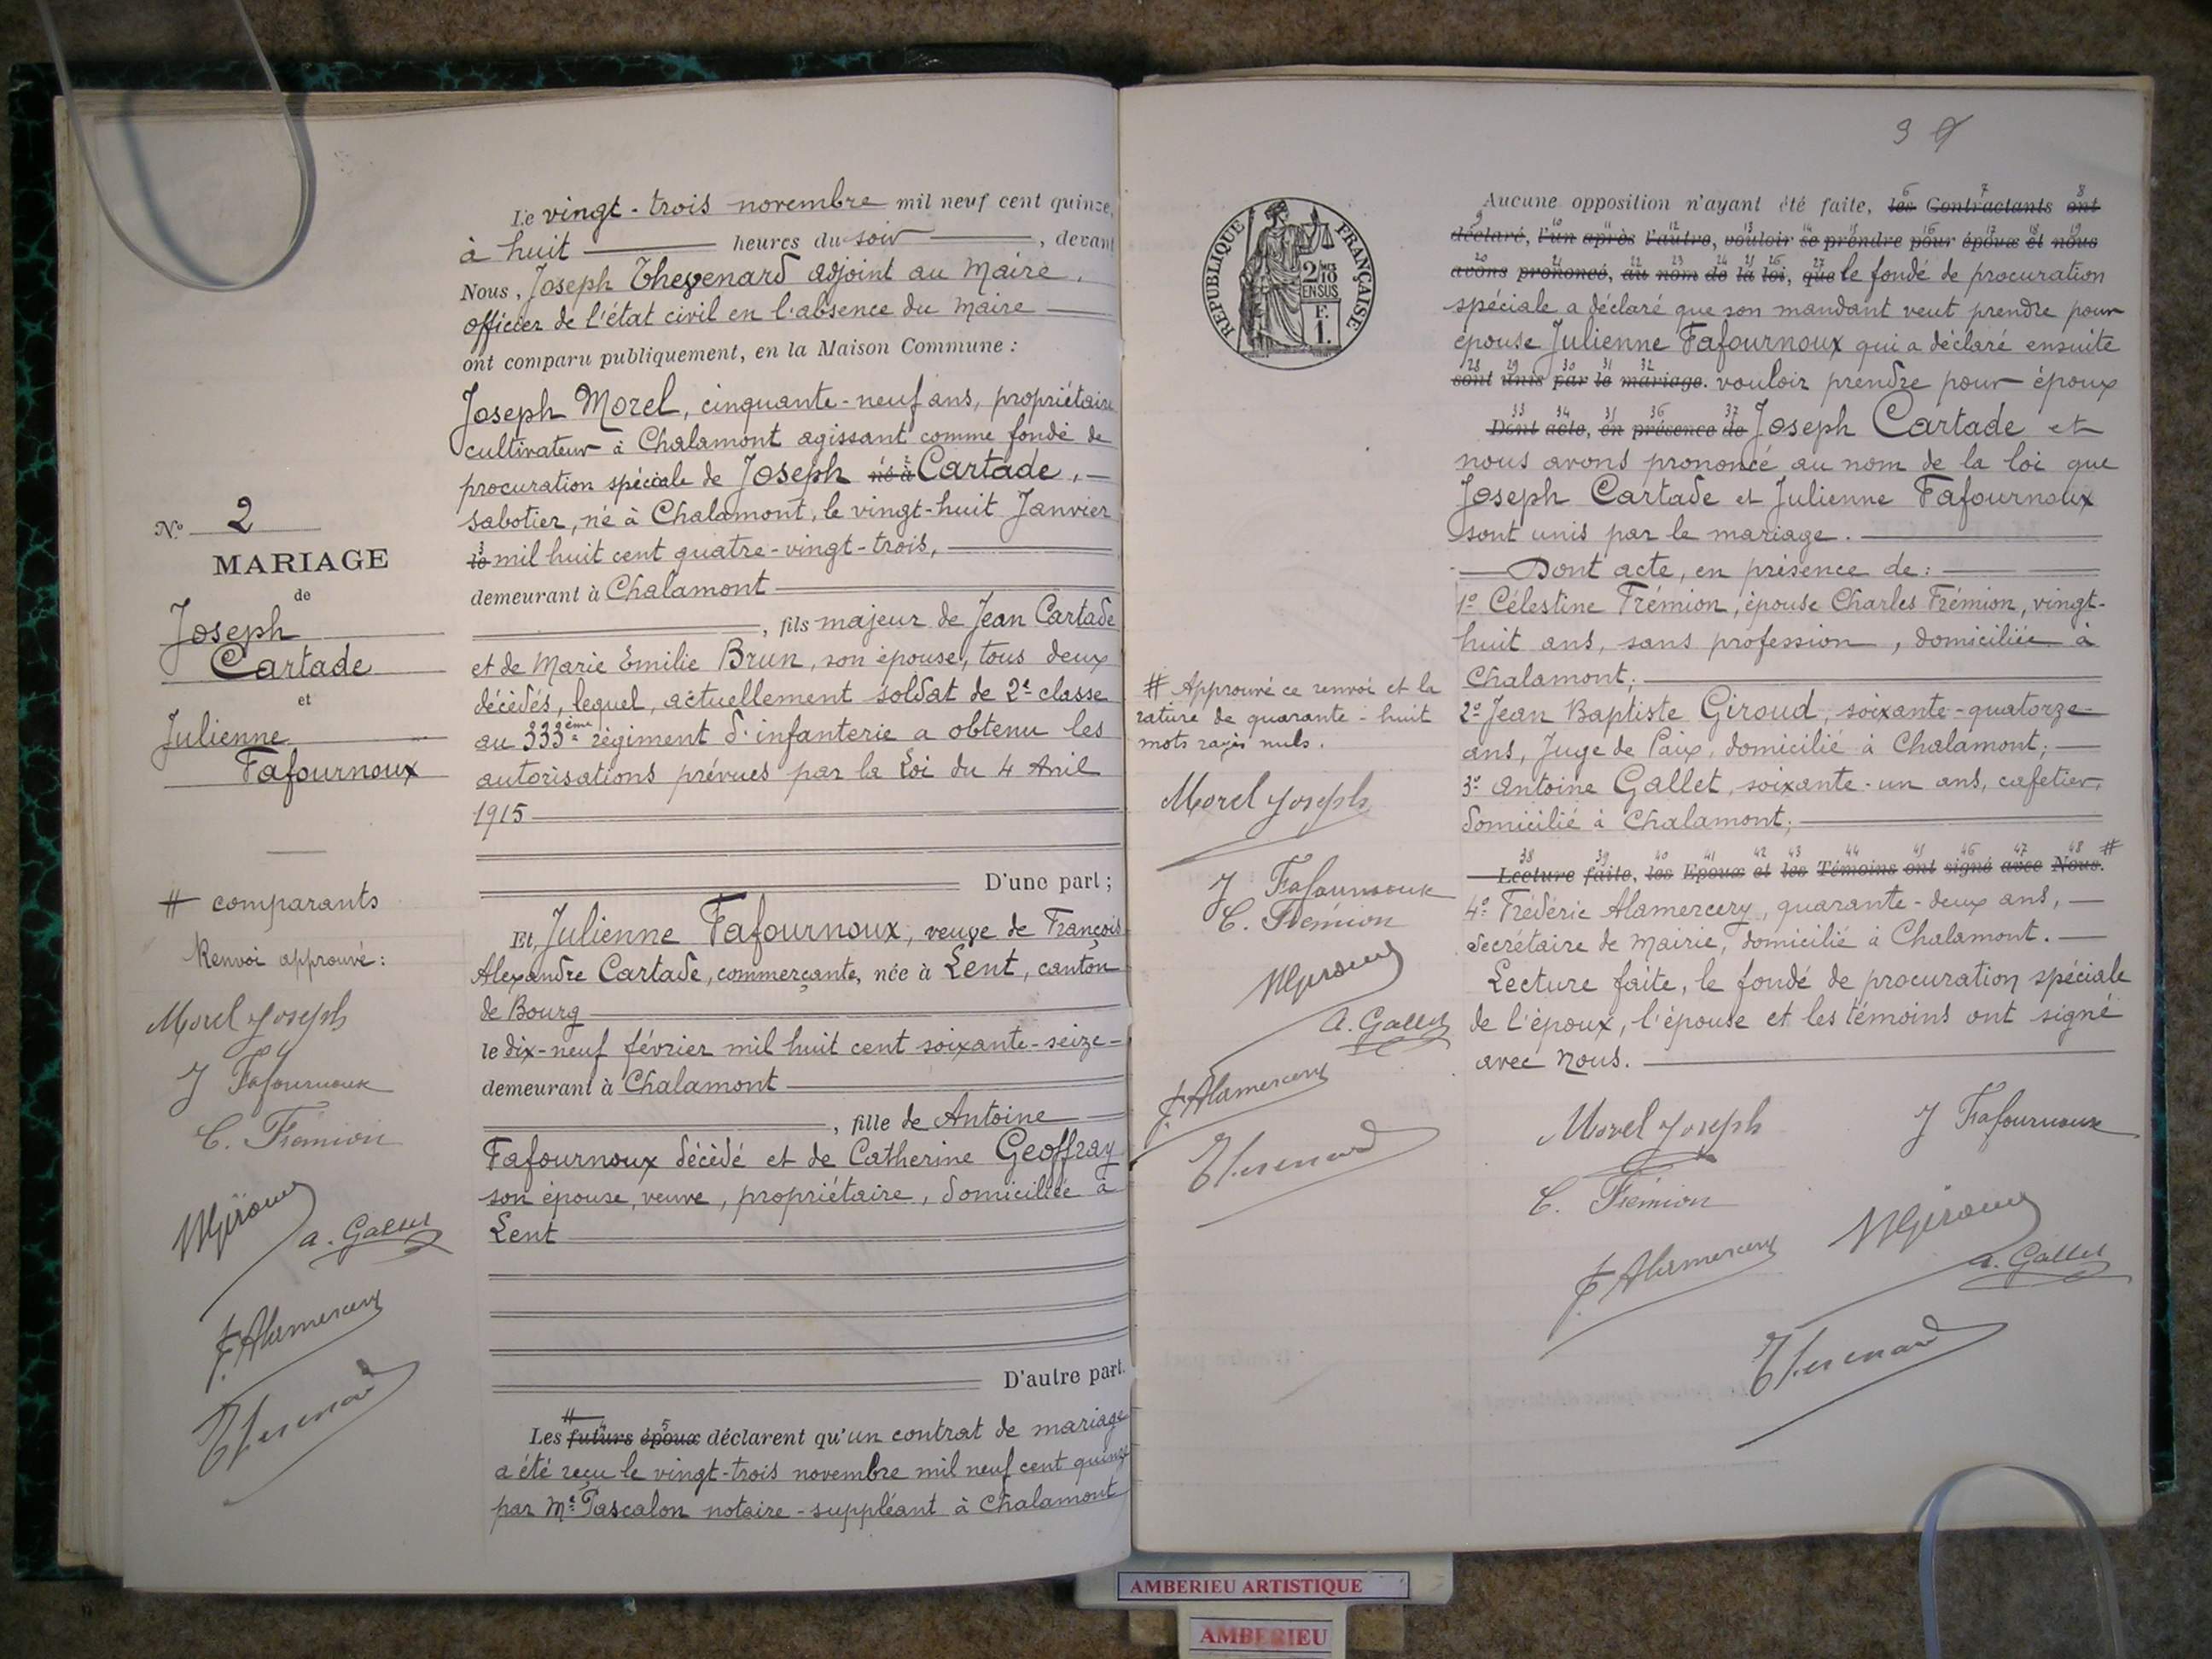 Le vingt-trois novembre mil neuf cent quinze,
à huit heures du soir, devant
Nous, Joseph Thevenard adjoint au Maire,
officier de l'état civil en l'absence du Maire
ont comparu publiquement, en la Maison Commune :
Joseph Morel, cinquante-neuf ans, propriétaire
cultivateur à Chalamont agissant comme fondé de
procuration spéciale de Joseph né à Cartade,
sabotier, né à Chalamont, le vingt-huit Janvier
le mil huit cent quatre-vingt-trois,
demeurant à Chalamont
, fils majeur de Jean Cartade
et de Marie Emilie Brun, son épouse, tous deux
décédés, lequel, actuellement soldat de 2e classe
au 333ème régiment d'infanterie a obtenu les
autorisations prévues par la Loi du 4 Avril
1915
D'une part ;
Et, Julienne Fafournoux, veuve de François
Alexandre Cartade, commerçante, née à Lent, canton
de Bourg
le dix-neuf février mil huit cent soixante-seize
demeurant à Chalamont
, fille de Antoine
Fafournoux décédé et de Catherine Geoffray
son épouse, veuve, propriétaire, domiciliée à
Lent
D'autre part.
#
Les futurs époux déclarent qu'un contrat de mariage
a été reçu le vingt-trois novembre mil neuf cent quinze
par Me Pascalon notaire-suppléant à Chalamont
No 2
MARIAGE
de
Joseph
Cartade
et
Julienne
Fafournoux
# comparants
Renvoi approuvé :
Morel Joseph
J Fafournoux
C. Frémion
Giroud
A. Gallet
F. Alamercery
Thevenard
9
RÉPUBLIQUE FRANÇAISE
2/10 EN SUS
F. 1.
Aucune opposition n'ayant été faite, les Contractants ont
déclaré, l'un après l'autre, vouloir se prendre pour époux et nous
avons prononcé, au nom de la loi, que le fondé de procuration
spéciale a déclaré que son mandant veut prendre pour
épouse Julienne Fafournoux qui a déclaré ensuite
sont unis par le mariage. vouloir prendre pour époux
Dont acte, en présence de Joseph Cartade et
nous avons prononcé au nom de la loi que
Joseph Cartade et Julienne Fafournoux
sont unis par le mariage.
Dont acte, en présence de :
1o Célestine Frémion, épouse Charles Frémion, vingt-
huit ans, sans profession, domiciliée à
Chalamont ;
2o Jean Baptiste Giroud, soixante-quatorze
ans, Juge de Paix, domicilié à Chalamont ;
3o Antoine Gallet, soixante-un ans, cafetier,
domicilié à Chalamont ;
Lecture faite, les Epoux et les Témoins ont signé avec Nous. #
4o Frédéric Alamercery, quarante-deux ans,
secrétaire de Mairie, domicilié à Chalamont.
Lecture faite, le fondé de procuration spéciale
de l'époux, l'épouse et les témoins ont signé
avec Nous.
Morel Joseph
J Fafournoux
C. Frémion
Giroud
F. Alamercery
A. Gallet
Thevenard
# Approuvé ce renvoi et la
rature de quarante-huit
mots rayés nuls.
Morel Joseph
J Fafournoux
C. Frémion
Giroud
A. Gallet
F. Alamercery
Thevenard
AMBERIEU ARTISTIQUE
AMBERIEU